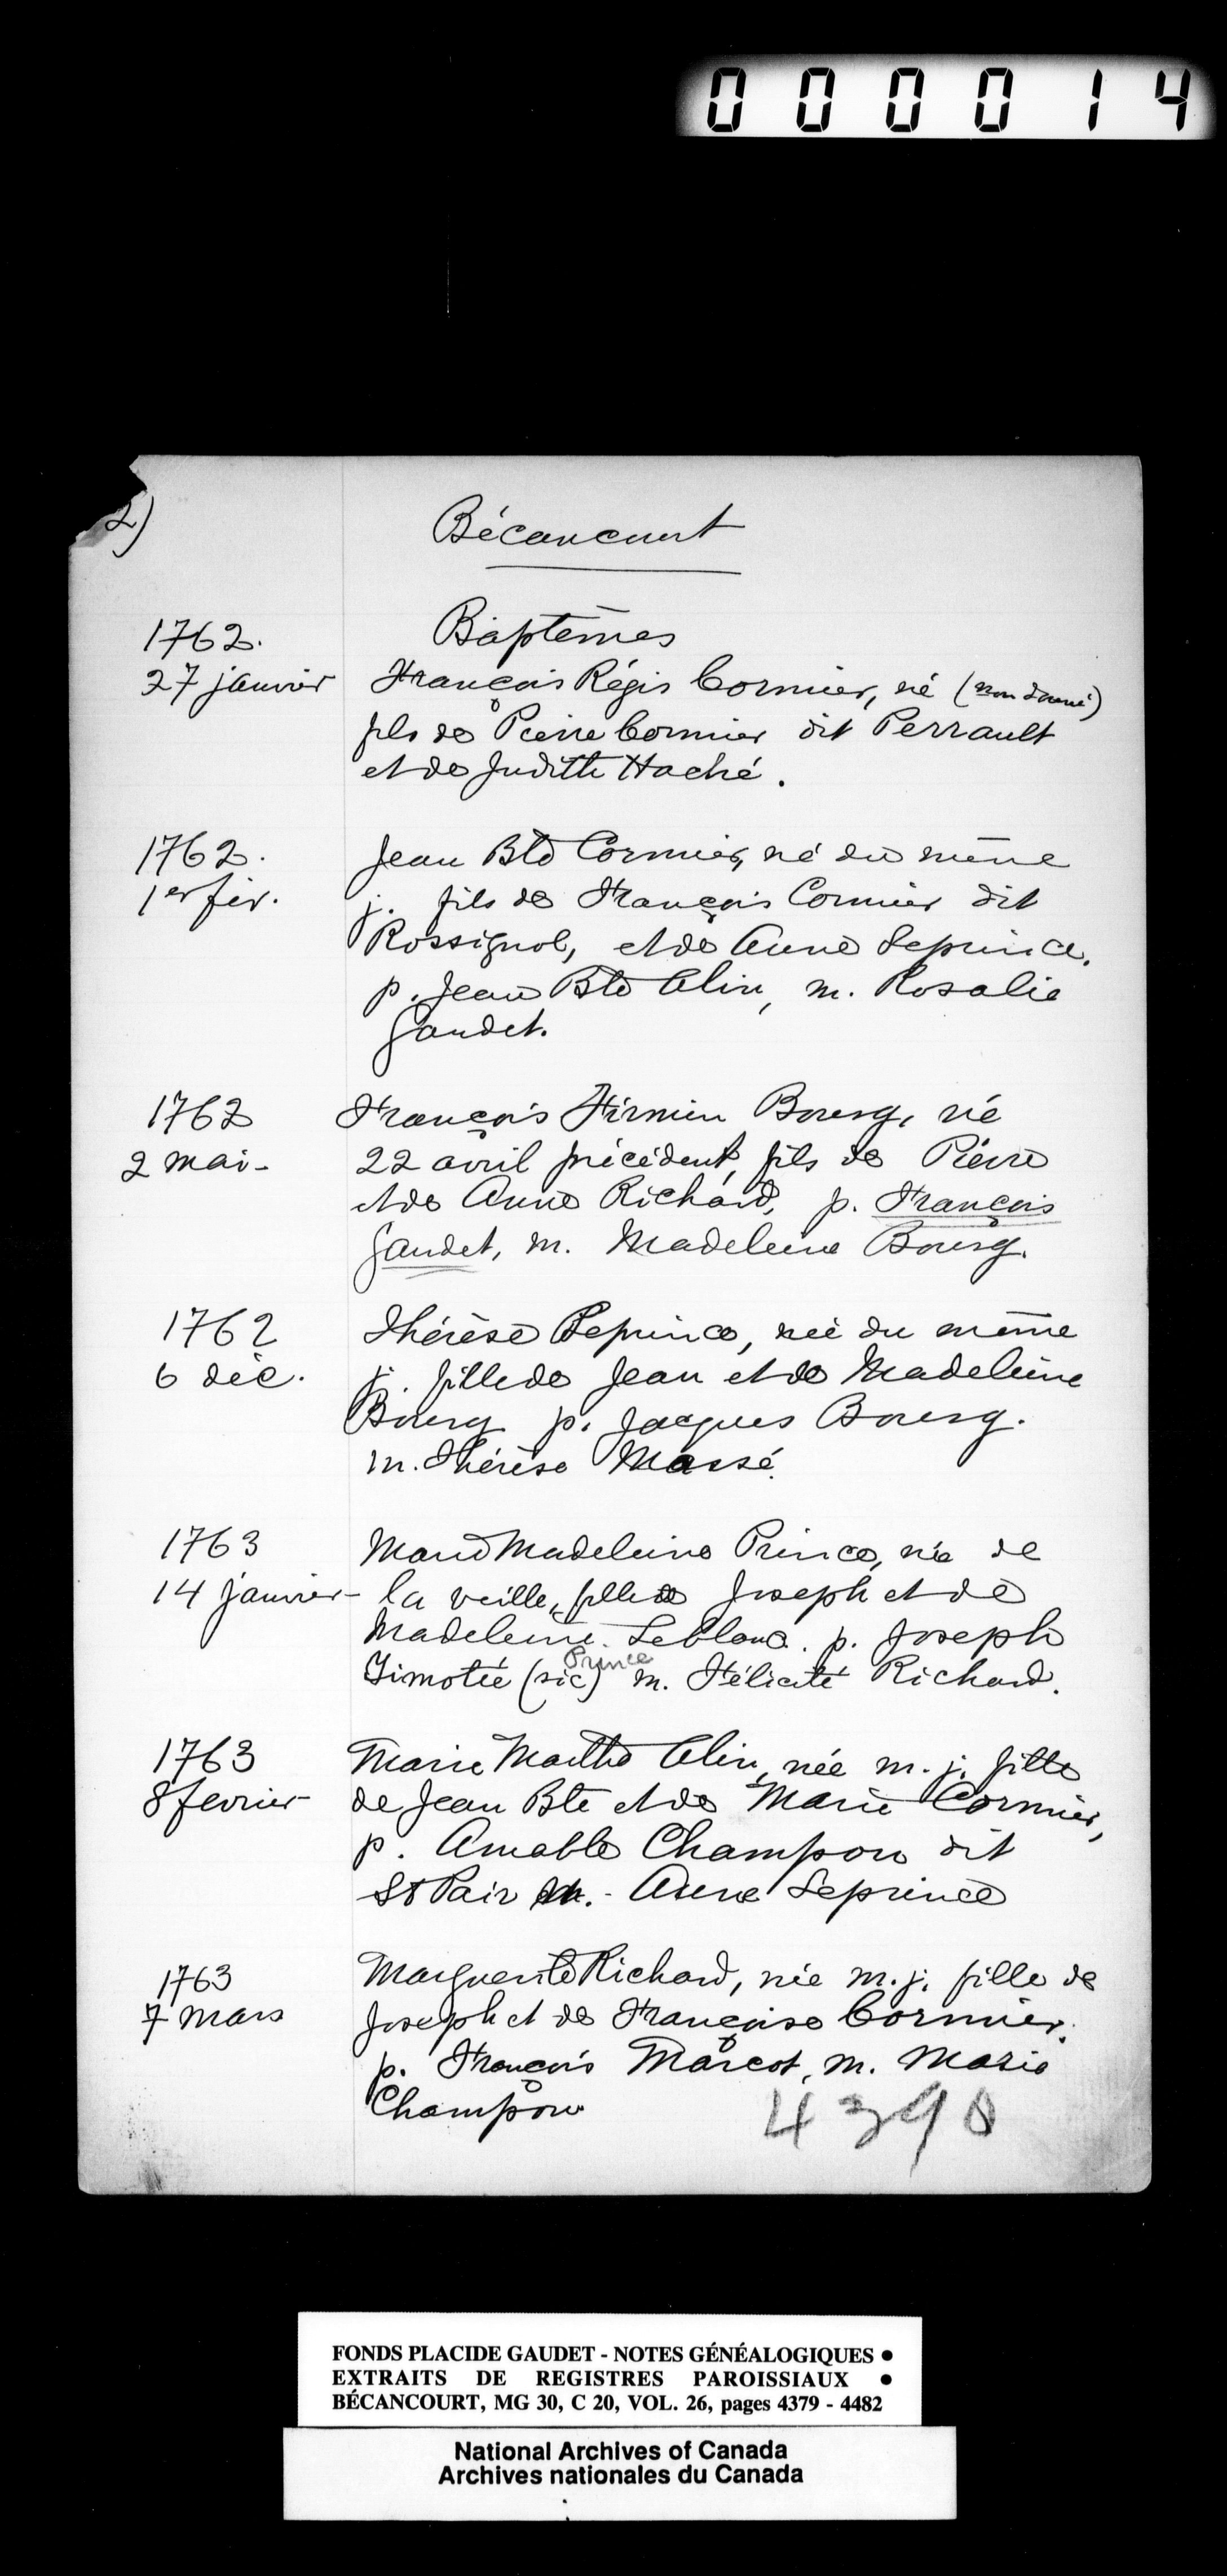 000014
2)
Bécancourt
Baptêmes
1762.
27 janvier
François Régis Cormier, né (non donné)
fils de Pierre Cormier dit Perrault
et de Judith Haché.
1762.
1er fév.
Jean Bte Cormier, né du même
j. fils de François Cormier dit
Rossignol, et de Anne Leprince.
p. Jean Bte Alin, m. Rosalie
Gaudet.
1762
2 mai-
François Firmin Bourg, né
22 avril précédent, fils de Pierre
et de Anne Richard, p. François
Gaudet, m. Madeleine Bourg.
1762
6 déc.
Thérèse Leprince, née du même
j. fille de Jean et de Madeleine
Bourg p. Jacques Bourg.
m. Thérèse Massé.
1763
14 janvier-
Marie Madeleine Prince, née de
la veille, fille de Joseph et de
Madeleine Leblanc. p. Joseph
Prince
Timotée (sic) m. Félicité Richard.
1763
8 fevrier
Marie Marthe Alin, née m. j. fille
de Jean Bte et de Marie Cormier,
p. Amable Champou dit
St Pair m. - Anne Leprince
1763
7 mars
Marguerite Richard, née m. j. fille de
Joseph et de Françoise Cormier.
p. François Marcot, m. Marie
Champou
4390
FONDS PLACIDE GAUDET - NOTES GÉNÉALOGIQUES ●
EXTRAITS DE REGISTRES PAROISSIAUX ●
BÉCANCOURT, MG 30, C 20, VOL. 26, pages 4379 - 4482
National Archives of Canada
Archives nationales du Canada